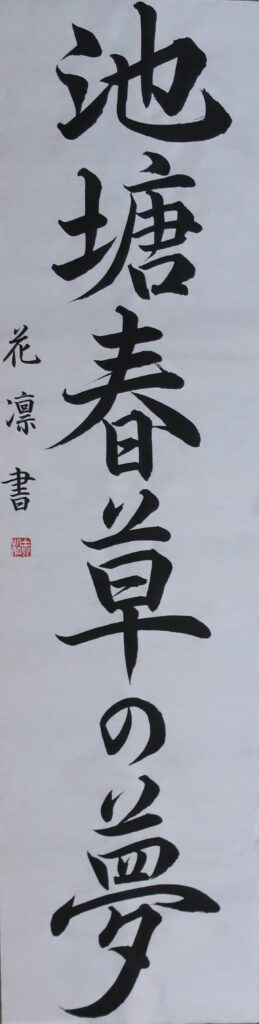 池塘春草の夢
花凛書